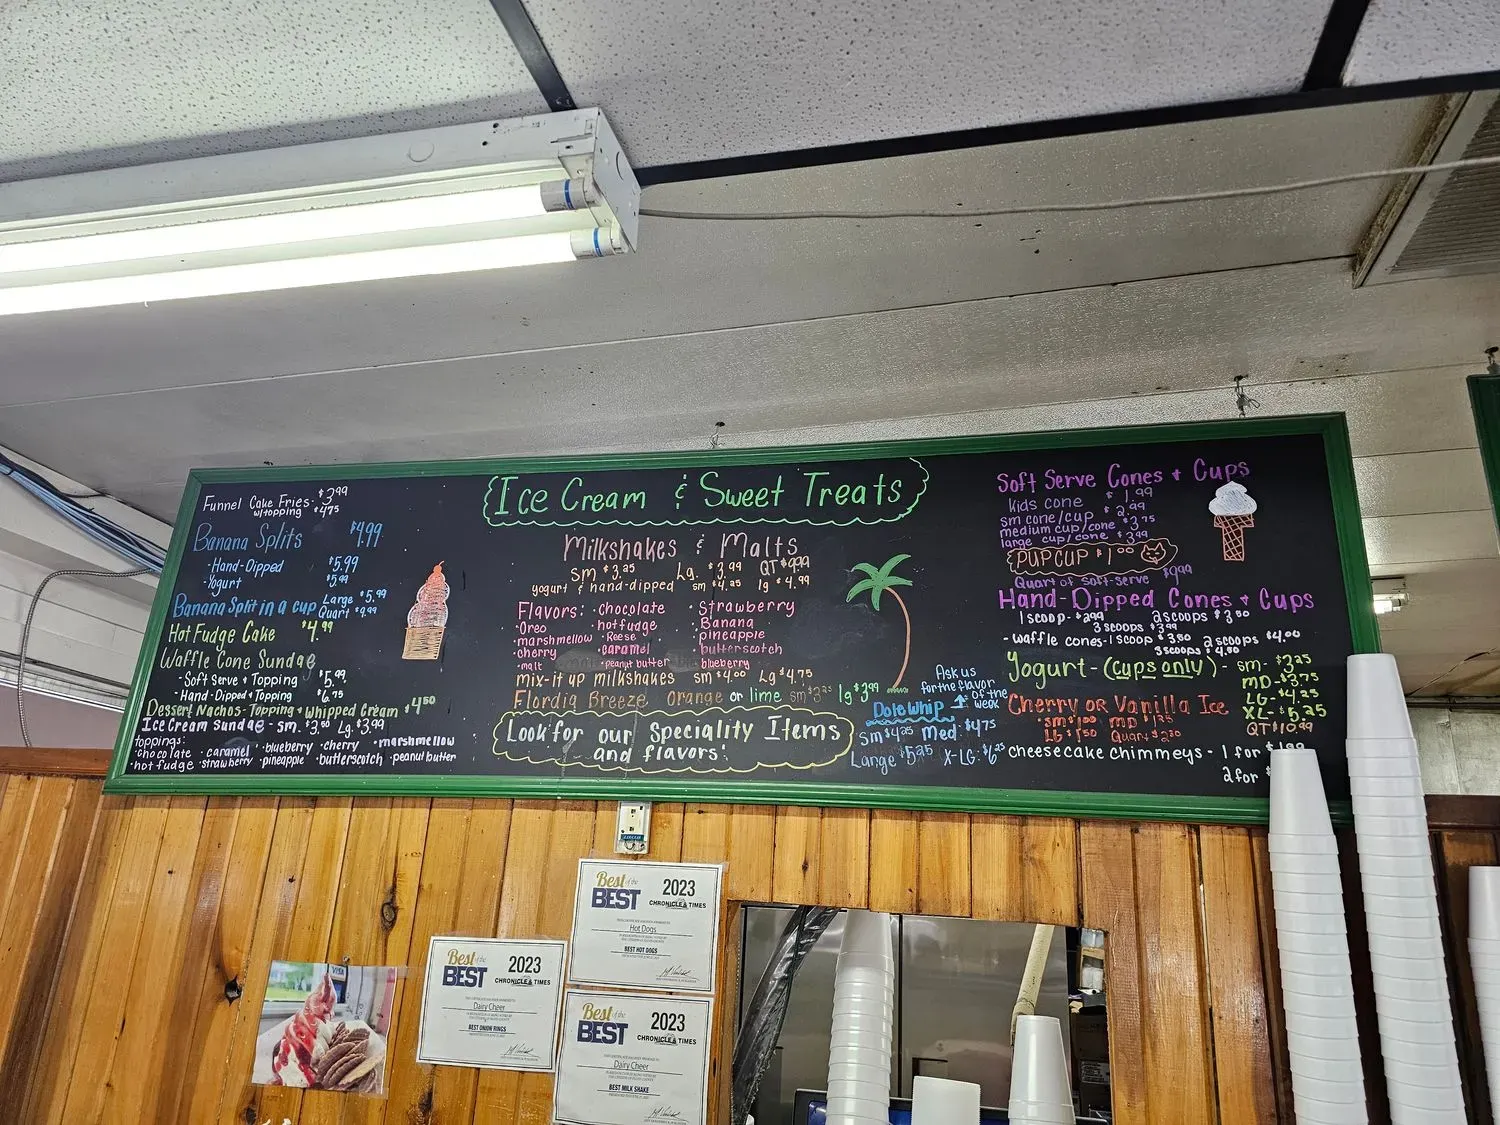 Ice Cream & Sweet Treats
Funnel Cake Fries- $3.99
w/topping $4.75
Banana Splits $4.99
-Hand-Dipped $5.99
-Yogurt $5.99
Banana Split in a cup Large $5.99
Quart $9.99
Hot Fudge Cake $4.99
Waffle Cone Sundae
-Soft Serve + Topping $5.99
-Hand-Dipped + Topping $6.75
Dessert Nachos-Topping + Whipped Cream $4.50
Ice Cream Sundae - sm. $3.50 Lg. $3.99
toppings:
·chocolate ·caramel ·blueberry ·cherry ·marshmellow
·hot fudge ·strawberry ·pineapple ·butterscotch ·peanut butter
Milkshakes & Malts
sm $3.25 Lg. $3.99 QT $9.99
yogurt & hand-dipped sm $4.25 lg $4.99
Flavors: ·chocolate ·Strawberry
·Oreo ·hot fudge ·Banana
·marshmellow ·Reese ·pineapple
·cherry ·caramel ·butterscotch
·malt ·peanut butter ·blueberry
mix-it up milkshakes sm $4.00 Lg $4.75
Flordia Breeze Orange or lime sm $3.25 lg $3.99
Look for our Speciality Items
and flavors!
Ask us
for the flavor
of the
week
Dole Whip
Sm $4.25 Med: $4.75
Large $5.25 X-LG: $6.25
Soft Serve Cones + Cups
Kids cone $1.99
sm cone/cup $2.99
medium cup/cone $3.75
large cup/cone $3.99
PUP CUP $1.00
Quart of soft-serve $9.99
Hand-Dipped Cones + Cups
1 scoop- $2.99 2 scoops $3.50
3 scoops $3.99
-waffle cones-1 scoop $3.50 2 scoops $4.00
3 scoops $4.50
Yogurt-(cups only)- sm- $3.25
MD- $3.75
LG- $4.25
XL- $5.25
QT $10.99
Cherry or Vanilla Ice
·sm $1.00 MD $1.25
LG $1.50 Quart $2.50
cheesecake chimmeys- 1 for $1.99
2 for $
Best of the
BEST
2023
CHRONICLE & TIMES
Hot Dogs
BEST HOT DOGS
Best of the
BEST
2023
CHRONICLE & TIMES
Dairy Cheer
BEST ONION RINGS
Best of the
BEST
2023
CHRONICLE & TIMES
Dairy Cheer
BEST MILK SHAKE
VISA